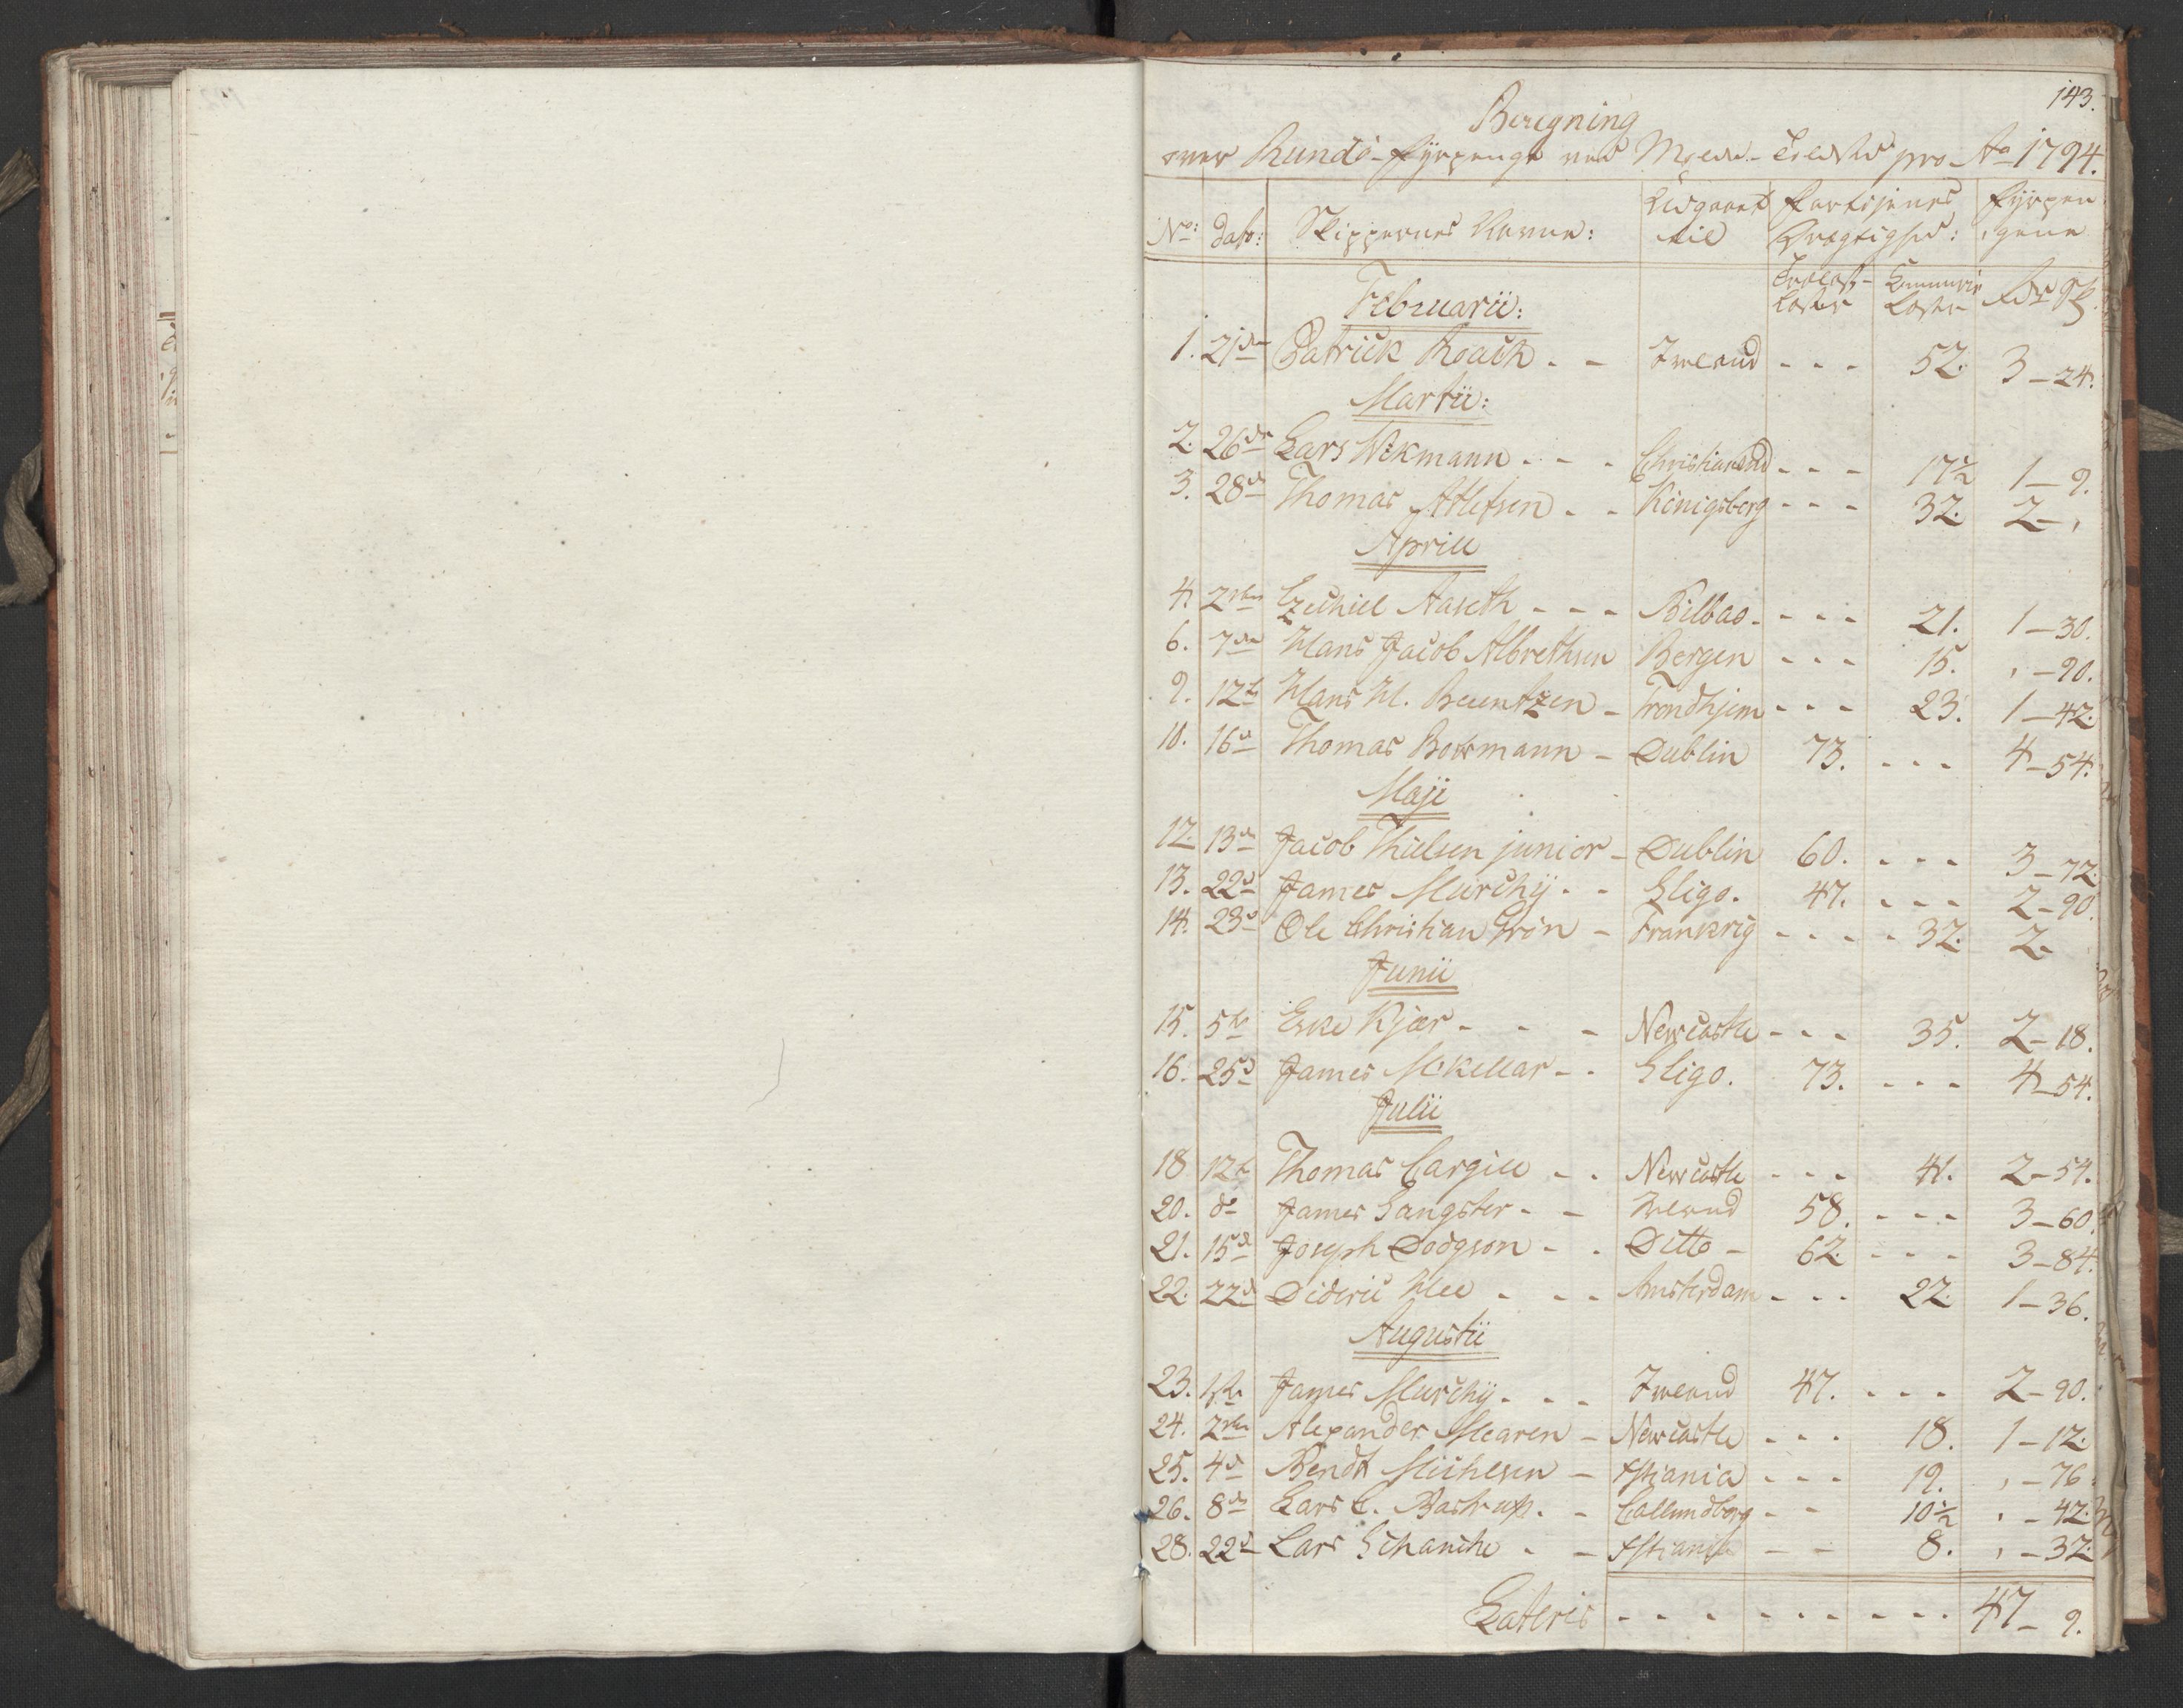 143.
Beregning
over Rundö-Fÿrpenge ved Molde- Toldsted pro Ao 1794.
No: Dato: Skippernes Navne: Udgaaet til Fartøjenes Drægtighed: Fÿrpengene
Træelast- Læster Commerce Læster Rdr S.
Februarii:
1. 21de Patrick Roach - - Irland - - - 52. 3 - 24.
Martii:
2. 26de Lars Wekmann - - - Christiansund - - - 17½ 1 - 9.
3. 28de Thomas Atlefsen - - Königsberg - - - 32. 2 - ,
Aprill
4. 2den Ezechiel Aaseth - - - Bilbao - - - - 21. 1 - 30.
6. 7de Hans Jacob Albrethsen Bergen - - - 15. , - 90.
9. 12te Hans H. Beuntzen - Trondhjem - - - 23. 1 - 42.
10. 16de Thomas Bowmann - Dublin 73. - - - 4 - 54.
Maji
12. 13de Jacob Thielsen junior - Dublin 60. - - - 3 - 72.
13. 22de James Murchÿ - - Sligo. 47. - - - 2 - 90.
14. 23de Ole Christian Grön - Frankrig - - - - 32. 2.
Junii
15. 5te Eske Kjær - - - Newcastle - - - 35. 2 - 18.
16. 25de James McKellar - - Sligo. 73. - - - 4 - 54.
Julii
18 12te Thomas Cargill - - Newcastle - - - 41. 2 - 54.
20. do James Sangster - - Irland 58. - - - 3 - 60.
21. 15de Joseph Dodgson - - Ditto - 62. - - - 3 - 84.
22. 22de Dideric Hee - - - Amsterdam - - - 22. 1 - 36.
Augustii
23. 1ste James Murchÿ - - - Irland 47. - - - 2 - 90.
24. 2den Alexander Mearen - Newcastle - - - 18. 1 - 12.
25. 4de Bendt Michelsen - Xstiania - - - 19. , - 76.
26. 8de Lars C. Bastrup. - Callundborg - - 10½ , - 42.
28. 22de Lars Schanche - - Xstiania - - 8. , - 32.
Lateris - - - - - - - - - - 47 - 9.